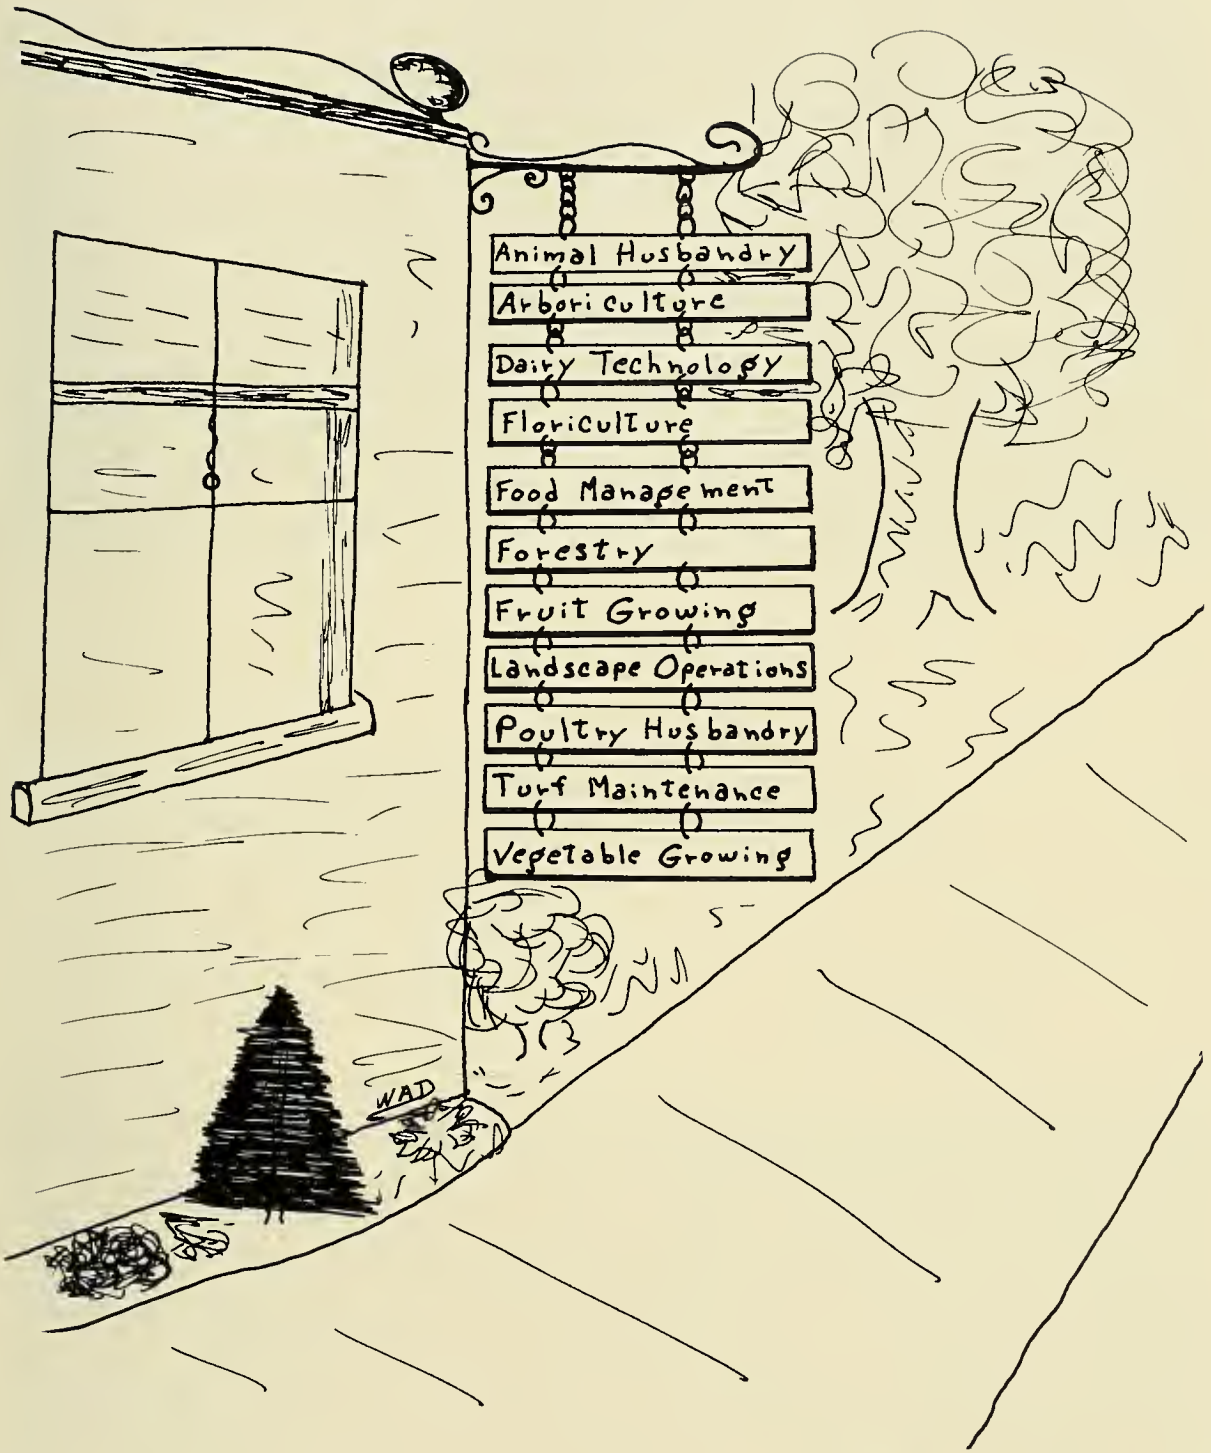 Animal Husbandry
Arboriculture
Dairy Technology
Floriculture
Food Management
Forestry
Fruit Growing
Landscape Operations
Poultry Husbandry
Turf Maintenance
Vegetable Growing
WAD